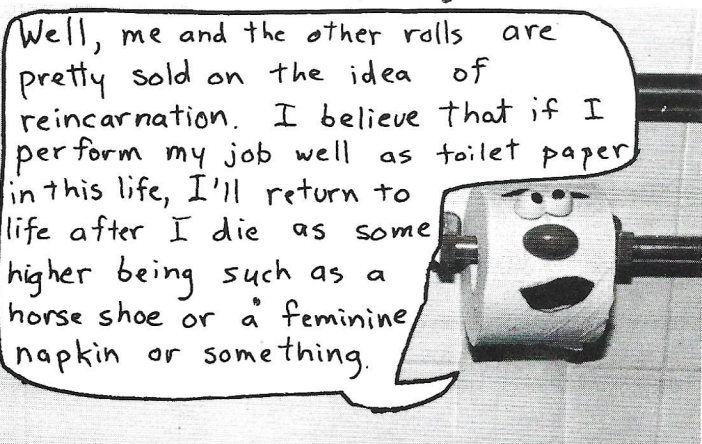 Well, me and the other rolls are
pretty sold on the idea of
reincarnation. I believe that if I
perform my job well as toilet paper
in this life, I'll return to
life after I die as some
higher being such as a
horse shoe or a feminine
napkin or something.